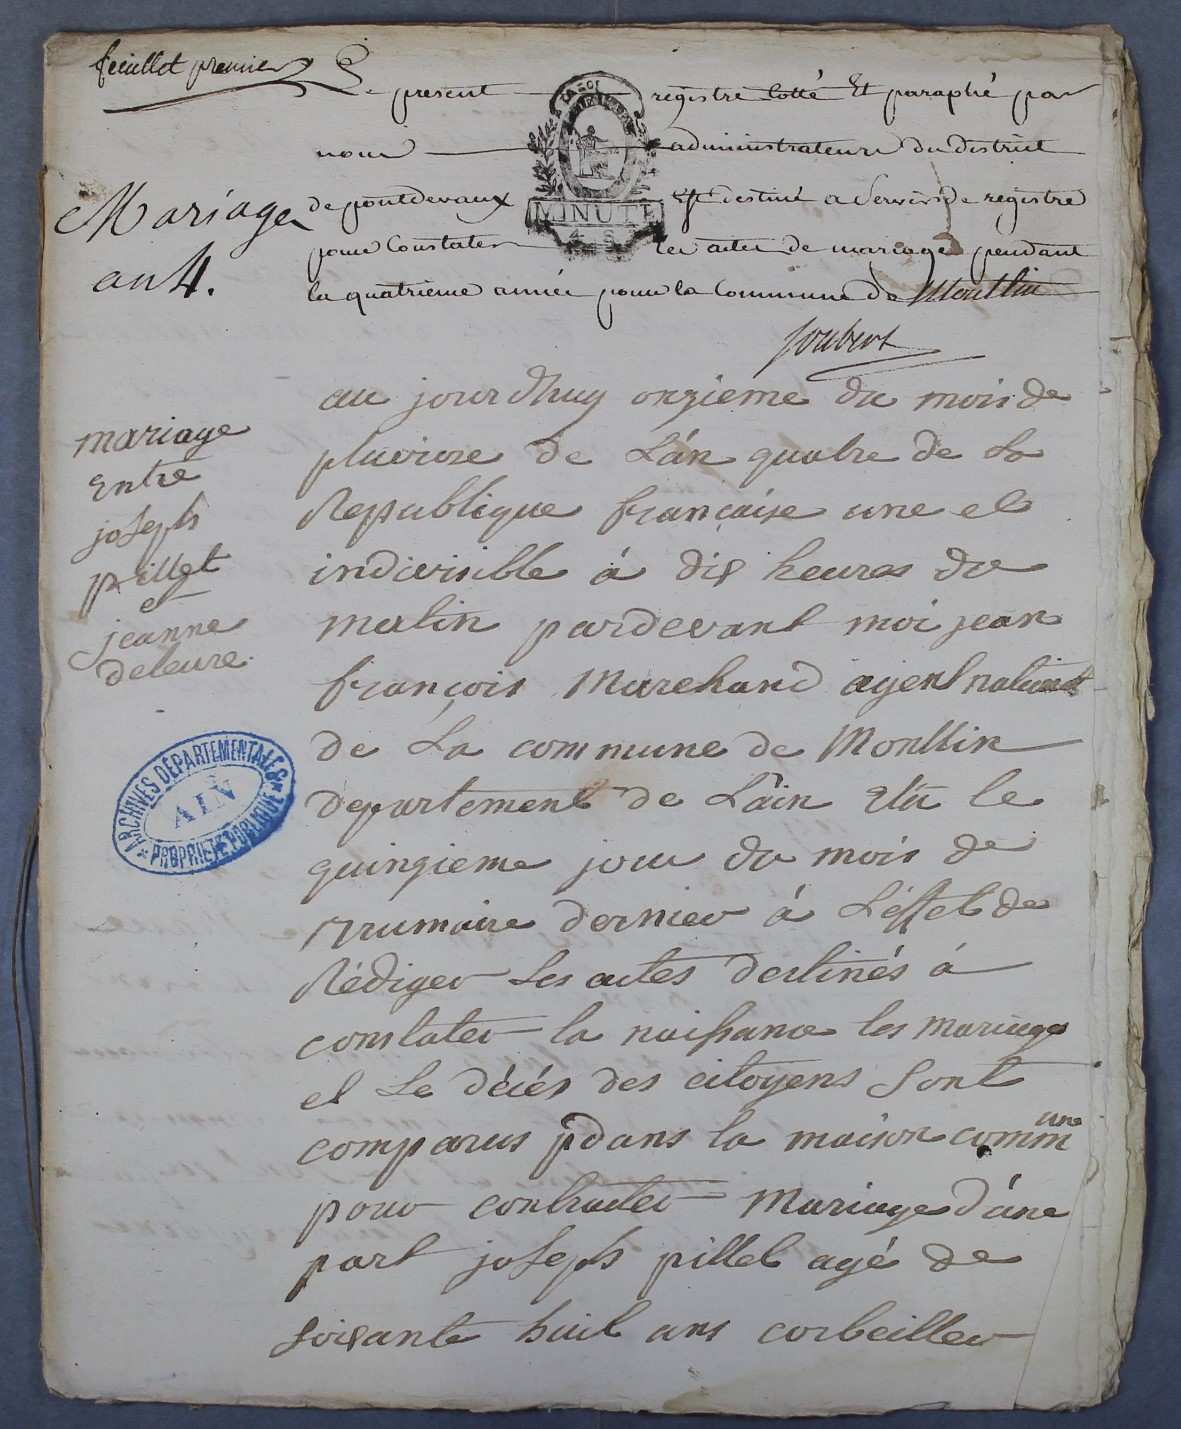 feuillet premier
Le present registre cotté Et paraphé par
nous administrateurs du district
de pontdevaux Est destiné a Servir de registre
pour Constater les actes de mariages pendant
la quatrieme année pour la Commune de Montlin
Joubert
Mariages
an 4.
mariage
Entre
joseph
pillet
et
jeanne
deleure.
au jourdhuy onzieme du mois de
pluviose de L'án quatre de La
Republique francaise une et
indivisible á dix heures du
matin pardevant moi jean
françois Marchand agent national
de La commune de Montlin
departement de L'ain Elu le
quinzieme jour du mois de
Brumaire dernier á L'effet de
Rédiger Les actes destinés á
constater la naissance les mariages
et Le décés des citoyens Sont
comparus dans la maison commune
pour contracter Mariage d'une
part joseph pillet agé de
soixante huit ans corbeiller
MINUTE
4 S
ARCHIVES DÉPARTEMENTALES
AIN
PROPRIÉTÉ PUBLIQUE